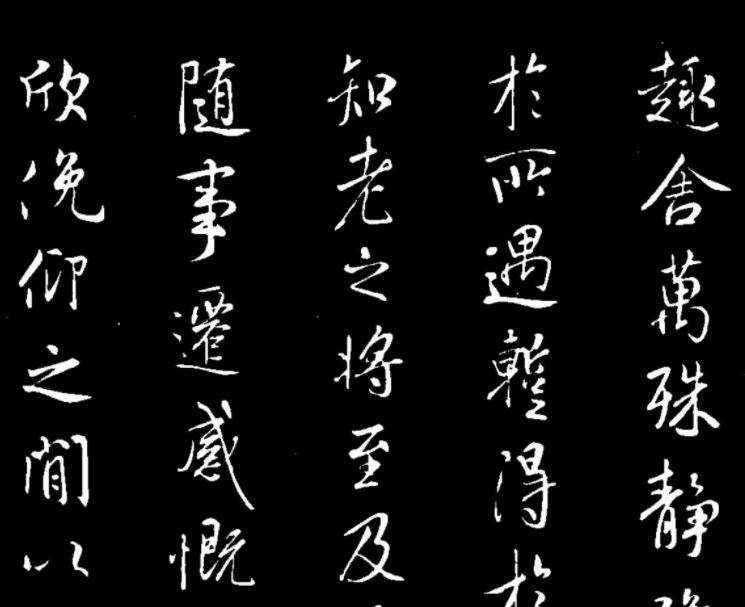 趣舍萬殊静
於所遇蹔得於
知老之将至及
随事遷感慨
欣俛仰之閒以